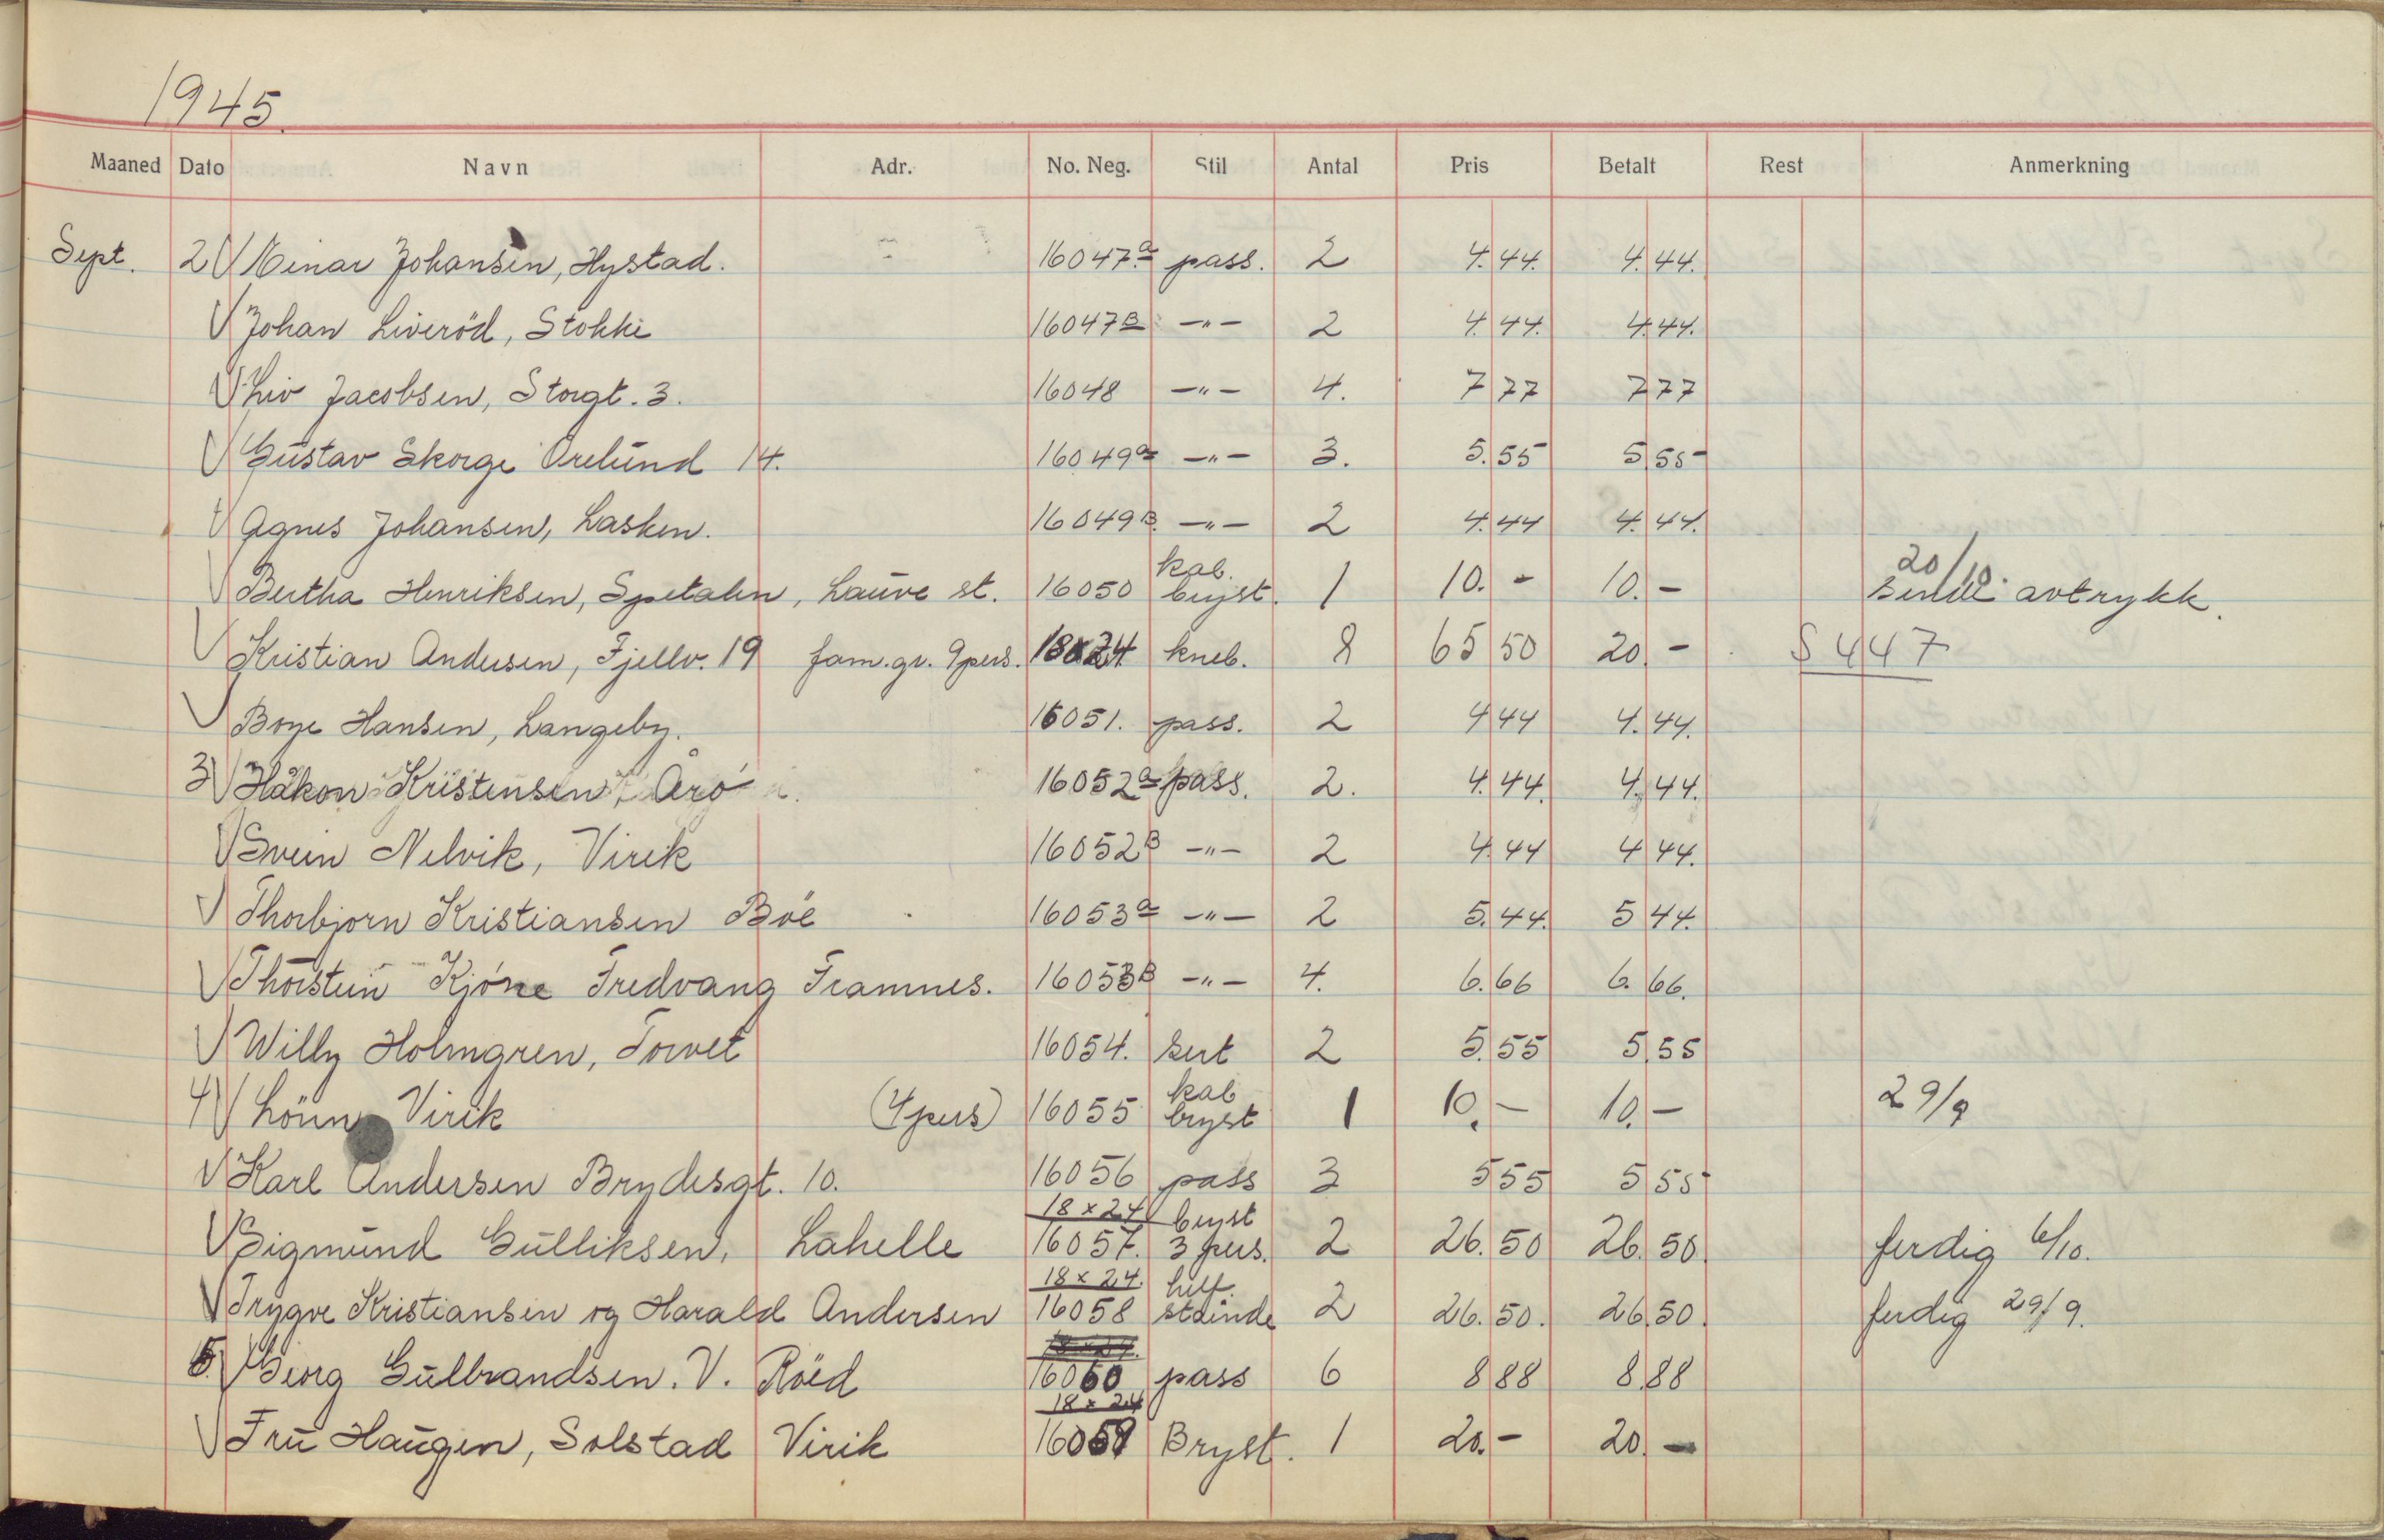 1945.
Maaned Dato Navn Adr. No. Neg. Stil Antal Pris Betalt Rest Anmerkning
Sept. 2 V Einar Johansen, Hystad. 16047a pass. 2 4.44. 4.44.
V Johan Liveröd, Stokke 16047B -"- 2 4.44. 4.44.
V Liv Jacobsen, Storgt. 3. 16048 -"- 4. 7 77 7 77
V Gustav Skorge Örelund 14. 16049a -"- 3. 5.55 5 55
V Agnes Johansen, Lasken. 16049B. -"- 2 4.44 4.44.
V Bertha Henriksen, Spetalen, Lauve st. 16050 kab. bryst. 1 10.- 10.- 20/10. sendt avtrykk.
V Kristian Andersen, Fjellv. 19 fam.gr. 9 pers. 18x24 kneb. 8 65 50 20.- S 447
V Boye Hansen, Langeby. 16051. pass. 2 4 44 4.44.
3 V Håkon Kristensen, Årö 16052a pass. 2. 4.44. 4.44.
V Svein Nelvik, Virik 16052B -"- 2 4.44 4 44.
V Thorbjorn Kristiansen Böe 16053a -"- 2 5.44. 5 44.
V Thorstein Kjöne Fredvang Framnes. 16053B -"- 4. 6.66 6.66.
V Willy Holmgren, Torvet 16054. sert 2 5.55 5.55
4 V Lönn Virik (4 pers) 16055 kab bryst 1 10.- 10.- 29/9
V Karl Andersen Brydesgt. 10. 16056 pass 3 5 55 5 55
V Sigmund Gulliksen, Lahelle 18x24 16057. bryst 3 pers. 2 26.50 26.50. ferdig 6/10.
V Trygve Kristiansen og Harald Andersen 18x24. 16058 helf. staende 2 26.50. 26.50. ferdig 29/9.
5. V Georg Gulbrandsen. V. Röed 16060 pass 6 8 88 8.88
V Fru Haugen, Solstad Virik 18x24 16059 Bryst. 1 20.- 20.-